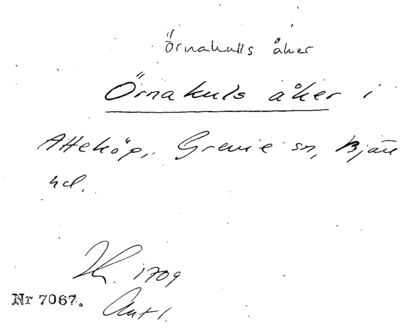 Örnakulls åker
Örnakuls åker i
Atteköp, Grevie sn, Bjäre
hd.
1709
Nr 7067.